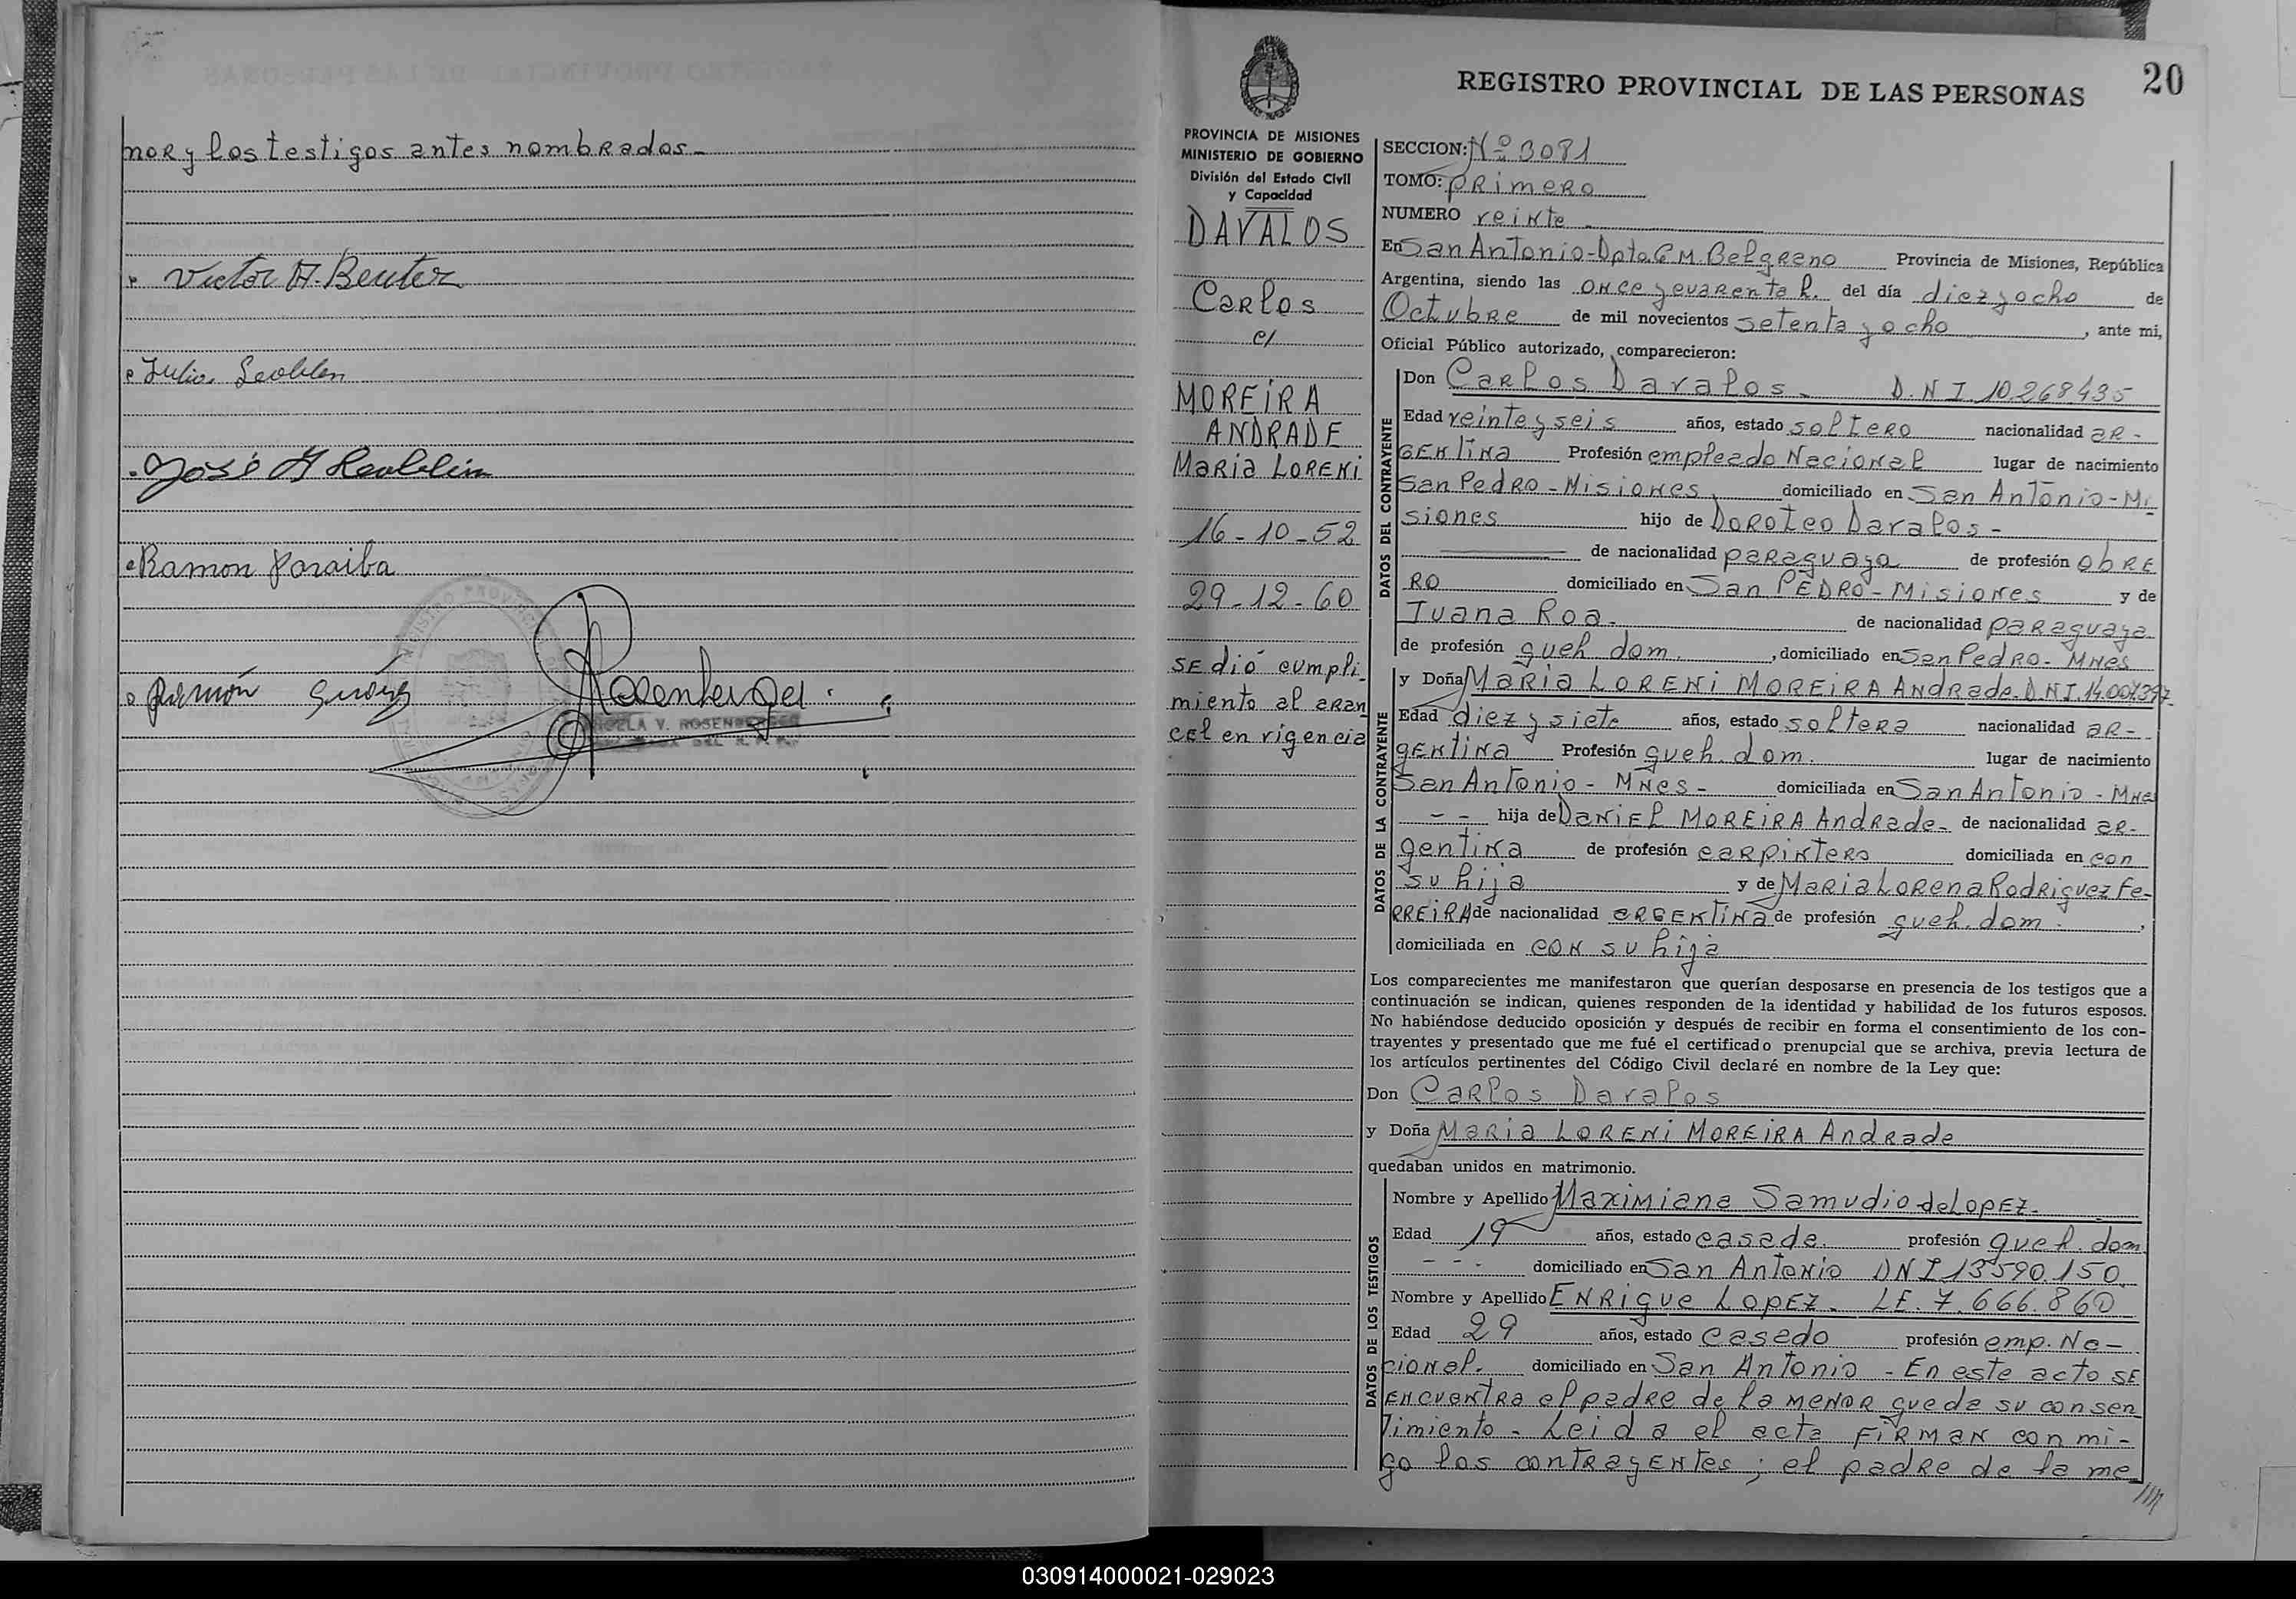 mor y los testigos antes nombrados-
Victor A. Beuter
Julio
José A
Ramon Paraiba
Ramón
Rosenberger
V. ROSENBERGER
20
REGISTRO PROVINCIAL DE LAS PERSONAS
PROVINCIA DE MISIONES
MINISTERIO DE GOBIERNO
División del Estado Civil
y Capacidad
DAVALOS
Carlos
c/
MOREIRA
ANDRADE
Maria LORENI
16-10-52
29-12-60
SE dió cumpli-
miento al aran
cel en vigencia
SECCION: Nº 3081
TOMO: primero
NUMERO veinte
En San Antonio-Dpto G M. Belgrano Provincia de Misiones, República
Argentina, siendo las once y cuarenta h. del día diez y ocho de
Octubre de mil novecientos setenta y ocho, ante mi,
Oficial Público autorizado, comparecieron:
DATOS DEL CONTRAYENTE
Don Carlos Davalos- D.N.I. 10.268435
Edad veinte y seis años, estado soltero nacionalidad ar-
gentina Profesión empleado Nacional lugar de nacimiento
San Pedro-Misiones, domiciliado en San Antonio-Mi-
siones hijo de Doroteo Davalos-
de nacionalidad paraguaya de profesión obre
ro domiciliado en San PEDRO-Misiones y de
Juana Roa- de nacionalidad paraguaya
de profesión queh dom., domiciliado en San Pedro-Mnes
DATOS DE LA CONTRAYENTE
y Doña Maria LORENI MOREIRA Andrade. D.N.I. 14.007397
Edad diez y siete años, estado soltera nacionalidad ar-
gentina Profesión queh. dom. lugar de nacimiento
San Antonio-Mnes- domiciliada en San Antonio-Mnes
-- hija de Daniel MOREIRA Andrade- de nacionalidad ar-
gentina de profesión carpintero domiciliada en con
su hija y de Maria Lorena Rodriguez Fe-
RREIRA de nacionalidad argentina de profesión queh. dom.,
domiciliada en con su hija
Los comparecientes me manifestaron que querían desposarse en presencia de los testigos que a
continuación se indican, quienes responden de la identidad y habilidad de los futuros esposos.
No habiéndose deducido oposición y después de recibir en forma el consentimiento de los con-
trayentes y presentado que me fué el certificado prenupcial que se archiva, previa lectura de
los artículos pertinentes del Código Civil declaré en nombre de la Ley que:
Don Carlos Davalos
y Doña Maria LORENI MOREIRA Andrade
quedaban unidos en matrimonio.
DATOS DE LOS TESTIGOS
Nombre y Apellido Maximiana Samudio de Lopez-
Edad 19 años, estado casada. profesión queh. dom
--- domiciliado en San Antonio DNI 13590.150
Nombre y Apellido ENRique Lopez- LE. 7.666.860
Edad 29 años, estado casado profesión emp. Na-
cional. domiciliado en San Antonio - En este acto SE
encuentra el padre de la menor que da su consen
timiento- Leida el acta firman con mi-
go los contrayentes; el padre de la me
030914000021-029023